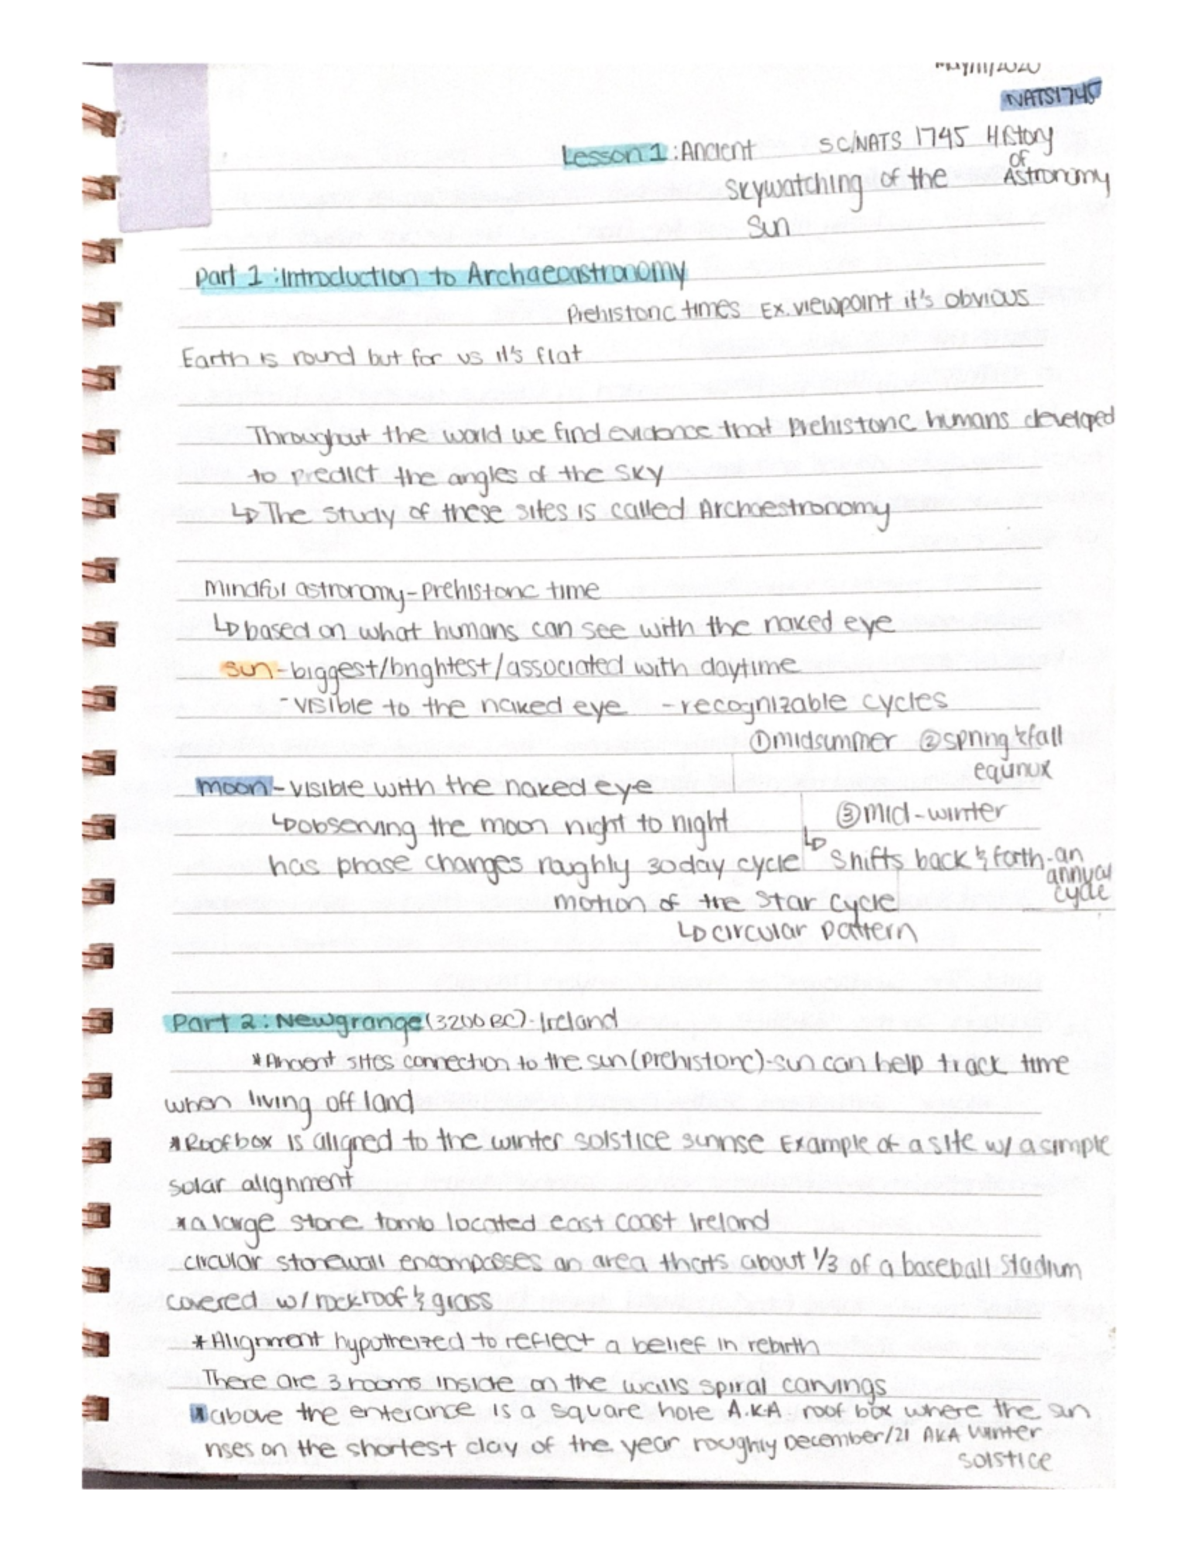 May/11/2020
NATS1745
Lesson 1: Ancient SC/NATS 1745 History of Astronomy
Skywatching of the
Sun
Part 1: Introduction to Archaeoastronomy
Prehistoric times Ex. viewpoint it's obvious
Earth is round but for us it's flat
Throughout the world we find evidence that Prehistoric humans develped
to predict the angles of the sky
↳ The study of these sites is called Archaestronomy
Mindful astronomy - prehistoric time
↳ based on what humans can see with the naked eye
sun - biggest/brightest/associated with daytime
- visible to the naked eye - recognizable cycles
① midsummer ② spring & fall
equnux
moon - visible with the naked eye
③ mid-winter
↳ observing the moon night to night
has phase changes roughly 30 day cycle
↳ Shifts back & forth - an
annual
cycle
motion of the star cycle
↳ circular pattern
Part 2: Newgrange (3200 BC) - Ireland
* Ancient sites connection to the sun (prehistoric) - sun can help track time
when living off land
* Roofbox is aligned to the winter solstice sunrise Example of a site w/ a simple
solar alignment
* a large stone tomb located east coast Ireland
circular stonewall encompasses an area thats about 1/3 of a baseball stadium
covered w/ rock roof & grass
* Alignment hypotheized to reflect a belief in rebirth
There are 3 rooms inside on the walls spiral carvings
* above the enterance is a square hole A.K.A roof box where the sun
rises on the shortest day of the year roughly December/21 AKA Winter
solstice